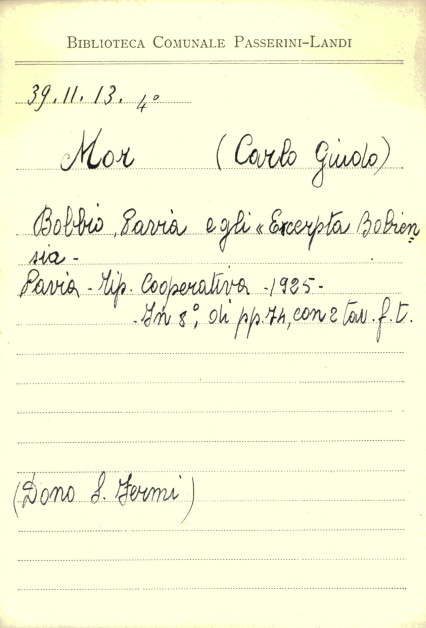 BIBLIOTECA COMUNALE PASSERINI-LANDI
39.11.13. 4°
Mor (Carlo Guido)
Bobbio, Pavia e gli « Excerpta Bobien
sia -
Pavia - Tip. Cooperativa - 1925 -
- In 8°, di pp. 74, con 2 tav. f. t.
(Dono S. Fermi)